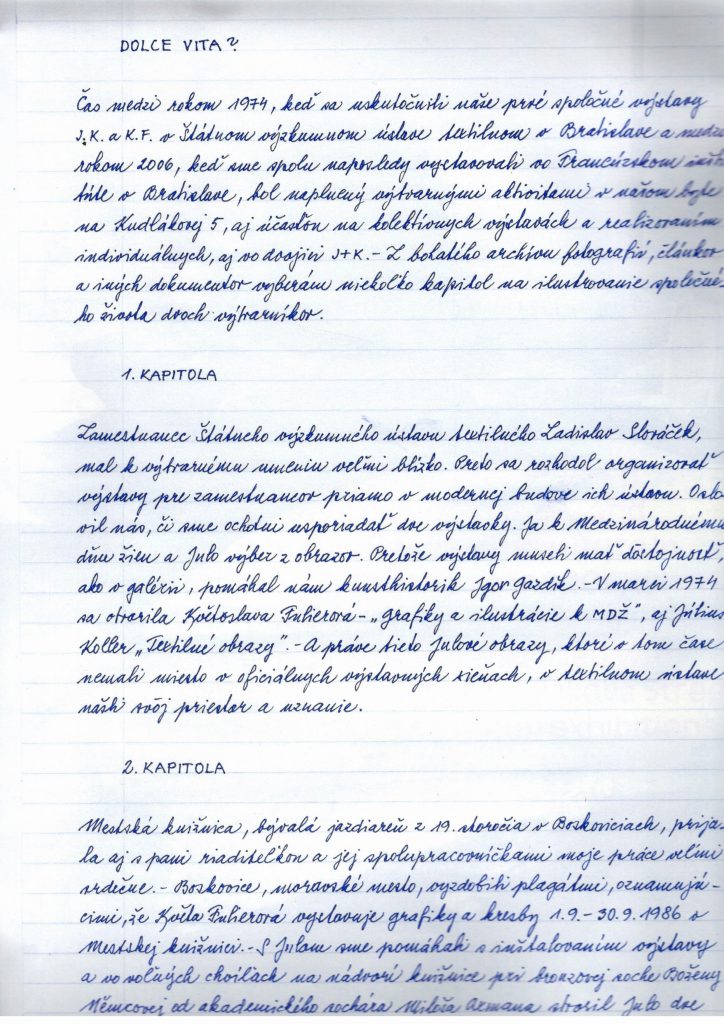 DOLCE VITA?
Čas medzi rokom 1974, keď sa uskutočnili naše prvé spoločné výstavy
J.K. a K.F. v Štátnom výzkumnom ústave textilnom v Bratislave a medzi
rokom 2006, keď sme spolu naposledy vystavovali vo Francúzskom inšti
túte v Bratislave, bol naplnený výtvarnými aktivitami v našom byte
na Kudlákovej 5, aj účasťou na kolektívnych výstavách a realizovaním
individuálnych, aj vo dvojici J+K. - Z bohatého archívu fotografií, článkov
a iných dokumentov vyberám niekoľko kapitol na ilustrovanie spoločné-
ho života dvoch výtvarníkov.
1. KAPITOLA
Zamestnanec Štátneho výzkumného ústavu textilného Ladislav Slováček,
mal k výtvarnému umeniu veľmi blízko. Preto sa rozhodol organizovať
výstavy pre zamestnancov priamo v modernej budove ich ústavu. Oslo
vil nás, či sme ochotní usporiadať dve výstavky. Ja k Medzinárodnému
dňu žien a Julo výber z obrazov. Pretože výstavy museli mať dôstojnosť,
ako v galérii, pomáhal nám kunsthistorik Igor Gazdík. - V marci 1974
sa otvorila Květoslava Fulierová - „Grafiky a ilustrácie k MDŽ", aj Július
Koller „Textilné obrazy". - A práve tieto Julové obrazy, ktoré v tom čase
nemali miesto v oficiálnych výstavných sieňach, v textilnom ústave
našli svôj priestor a uznanie.
2. KAPITOLA
Mestská knižnica, bývalá jazdiareň z 19. storočia v Boskoviciach, prija-
la aj s pani riaditeľkou a jej spolupracovníčkami moje práce veľmi
srdečne. - Boskovice, moravské mesto, vyzdobili plagátmi, oznamujú-
cimi, že Květa Fulierová vystavuje grafiky a kresby 1.9. - 30.9.1986 v
Mestskej knižnici. - S Julom sme pomáhali s inštalovaním výstavy
a vo voľných chvíľach na nádvorí knižnice pri bronzovej soche Boženy
Němcovej od akademického sochára Miloša Axmana stvoril Julo dve